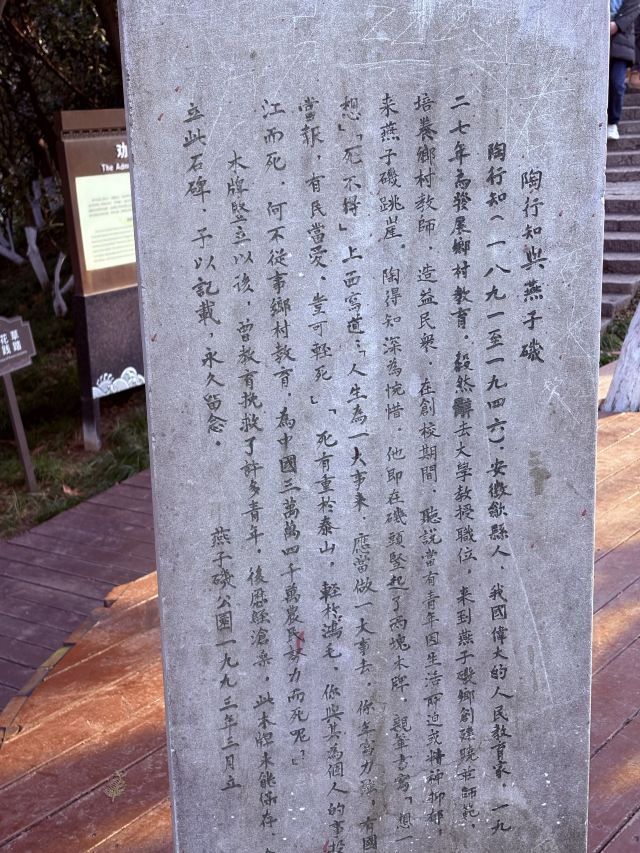 陶行知與燕子磯
陶行知(一八九一至一九四六)．安徽歙縣人．我國偉大的人民教育家．一九
二七年為發展鄉村教育．毅然辭去大學教授職位．來到燕子磯鄉創辦曉莊師範．
培養鄉村教師．造益民衆．在創校期間．聽説當有青年因生活所迫或精神抑郁．
來燕子磯跳崖．陶得知深為惋惜．他即在磯頭竪起了两塊木牌．親筆書寫「想一
想」「死不得」上面寫道：「人生為一大事來．應當做一大事去．你年富力強．有國
當報．有民當愛．豈可輕死」「死有重於泰山．輕於鴻毛．你與其為個人的事投
江而死．何不從事鄉村教育．為中國三萬萬四千萬農民努力而死呢」
木牌竪立以後．曾教育挽救了許多青年．後歷經滄桑．此木牌未能保存．
立此石碑．予以記載．永久留念．
燕子磯公園一九九三年三月立
The Adm
花草
踐踏